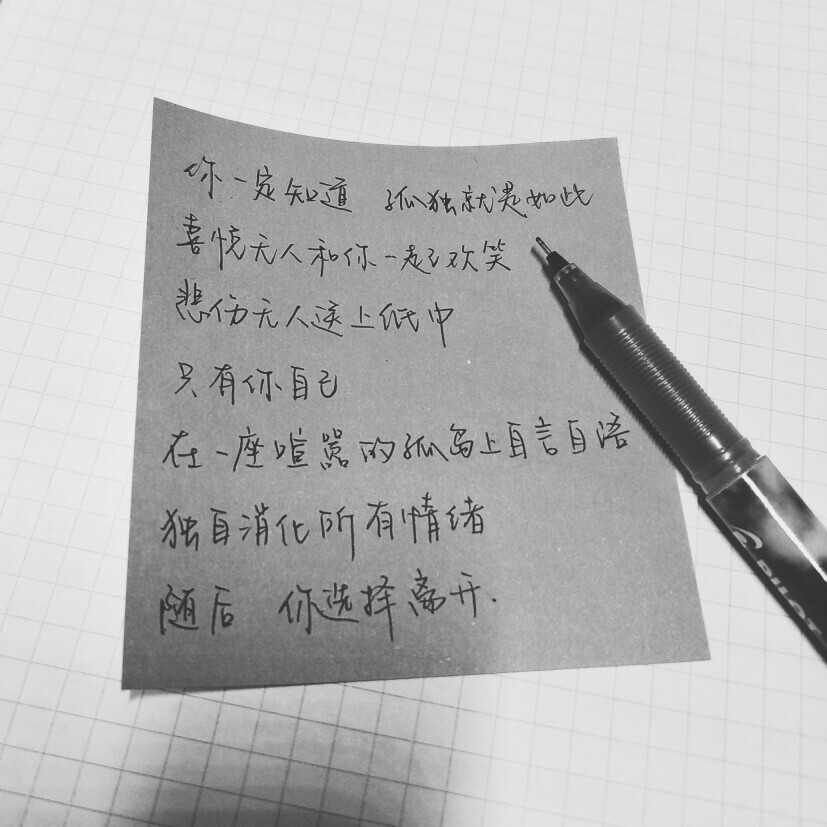 你一定知道 孤独就是如此
喜悦无人和你一起欢笑
悲伤无人送上纸巾
只有你自己
在一座喧嚣的孤岛上自言自语
独自消化所有情绪
随后 你选择离开.
PILOT